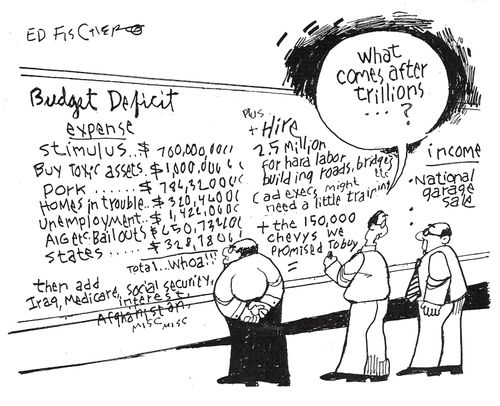 ED FISCHER
What
comes after
trillions
... ?
Budget Deficit
expense
Stimulus...$ 700,000,000
Buy Toxic assets.$1,000,000
Pork ......$
Homes in trouble..$
Unemployment..$
AIG etc. Bail outs $
States .....$
Total..Whoa!!!
then add
Iraq, Medicare, social security,
interest,
Afghanistan,
misc misc
Plus
+ Hire
2.5 Million
for hard labor
building roads, bridges etc
(ad execs might
need a little training
+ the 150,000
chevys we
Promised To buy
=
income
National
garage
sale